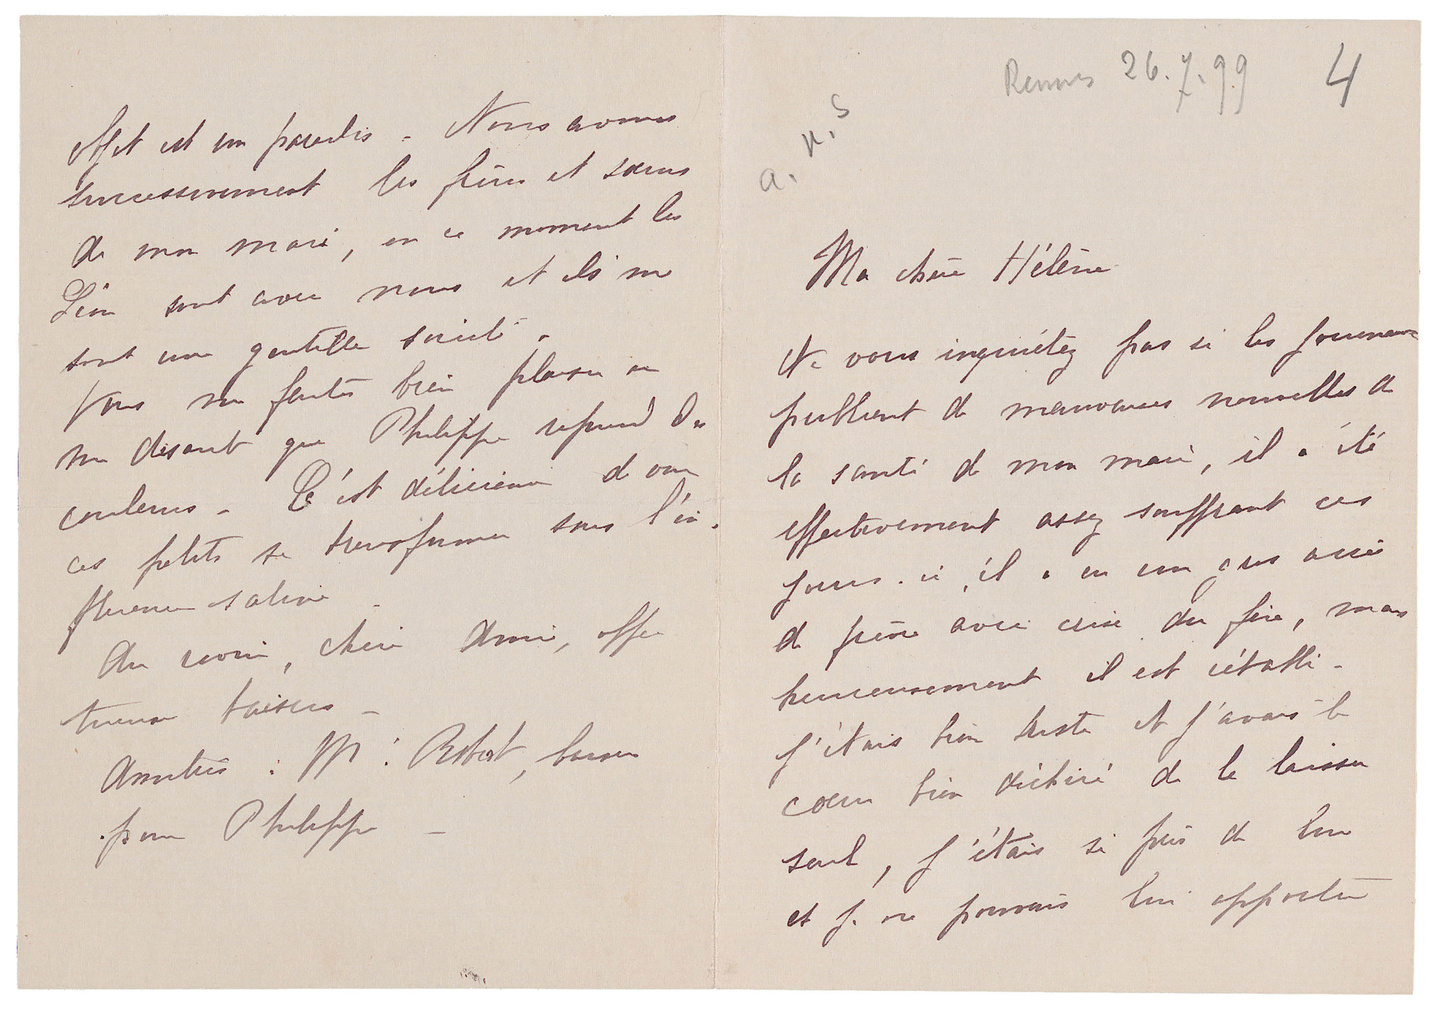 Rennes 26.7.99
4
a. n. s
Ma chère Hélène
Ne vous inquiétez pas si les journaux
publient de mauvaises nouvelles de
la santé de mon mari, il a été
effectivement assez souffrant ces
jours-ci, il a eu un gros accès
de fièvre avec crise du foie, mais
heureusement il est rétabli -
J'étais bien triste et j'avais le
cœur bien déchiré de le laisser
seul, j'étais si près de lui
et je ne pouvais lui apporter
effet est un paradis - Nous avons
successivement les frères et sœurs
de mon mari, en ce moment les
Léon sont avec nous et ils me
sont une gentille société -
Vous me faites bien plaisir en
me disant que Philippe reprend des
couleurs - C'est délicieux de voir
ces petits se transformer sous l'in-
fluence saline -
Au revoir, chère amie, affec
tueux baisers -
Amitiés à Mr Robert, baisers
pour Philippe -